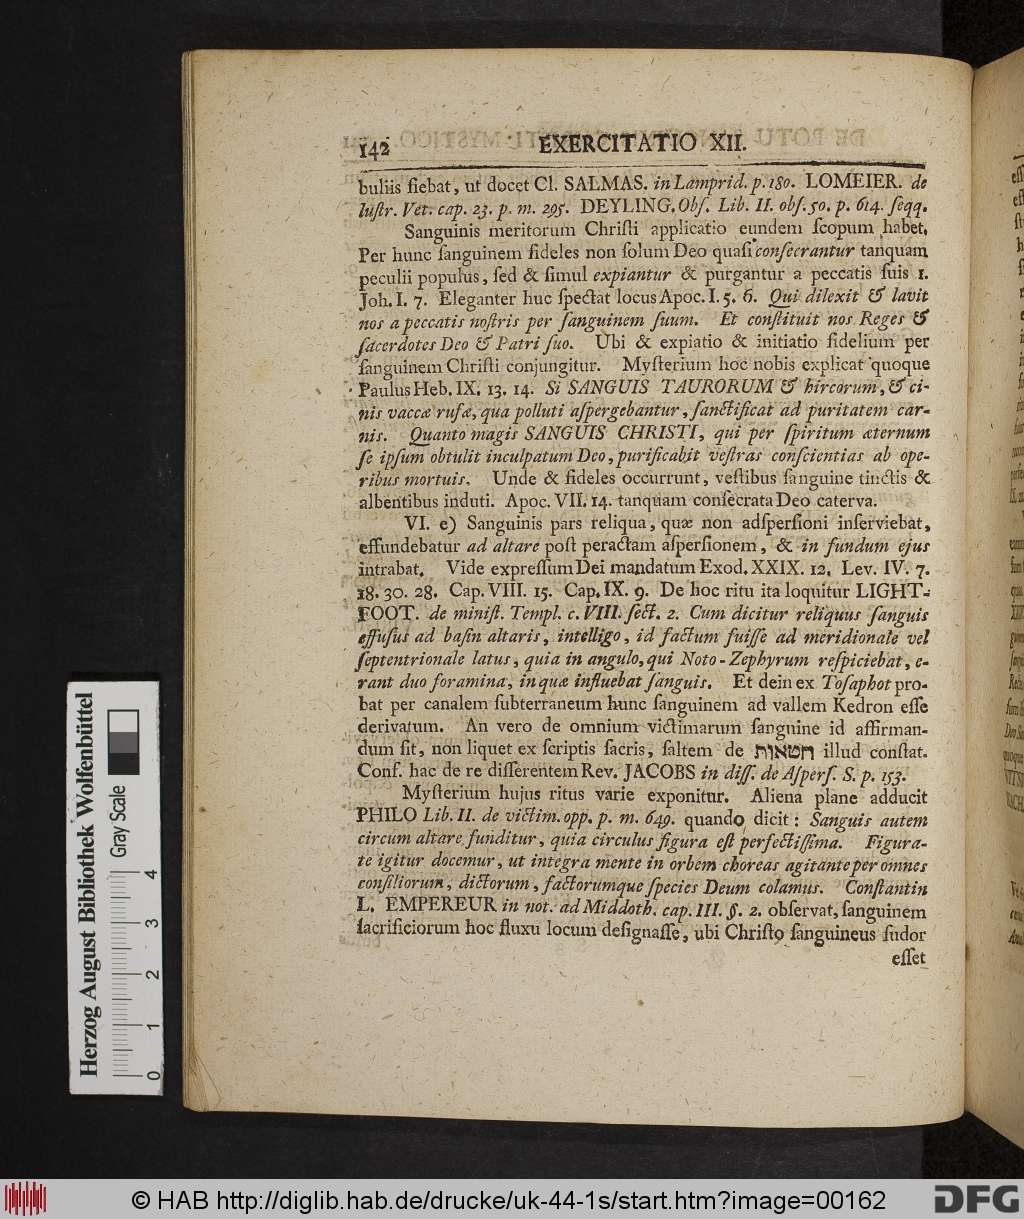 142 EXERCITATIO XII.
buliis fiebat, ut docet Cl. SALMAS. in Lamprid. p. 180. LOMEIER. de
luſtr. Vet. cap. 23. p. m. 295. DEYLING. Obſ. Lib. II. obſ. 50. p. 614. ſeqq.
Sanguinis meritorum Chriſti applicatio eundem ſcopum habet.
Per hunc ſanguinem fideles non ſolum Deo quaſi conſecrantur tanquam
peculii populus, ſed & ſimul expiantur & purgantur a peccatis ſuis 1.
Joh. I. 7. Eleganter huc ſpectat locus Apoc. I. 5. 6. Qui dilexit & lavit
nos a peccatis noſtris per ſanguinem ſuum. Et conſtituit nos Reges &
ſacerdotes Deo & Patri ſuo. Ubi & expiatio & initiatio fidelium per
ſanguinem Chriſti conjungitur. Myſterium hoc nobis explicat quoque
Paulus Heb. IX. 13. 14. Si SANGUIS TAURORUM & hircorum, & ci-
nis vaccæ rufæ, qua polluti aſpergebantur, ſanctificat ad puritatem car-
nis. Quanto magis SANGUIS CHRISTI, qui per ſpiritum æternum
ſe ipſum obtulit inculpatum Deo, purificabit veſtras conſcientias ab ope-
ribus mortuis. Unde & fideles occurrunt, veſtibus ſanguine tinctis &
albentibus induti. Apoc. VII. 14. tanquam conſecrata Deo caterva.
VI. e) Sanguinis pars reliqua, quæ non adſperſioni inſerviebat,
effundebatur ad altare poſt peractam aſperſionem, & in fundum ejus
intrabat. Vide expreſſum Dei mandatum Exod. XXIX. 12. Lev. IV. 7.
18. 30. 28. Cap. VIII. 15. Cap. IX. 9. De hoc ritu ita loquitur LIGHT-
FOOT. de miniſt. Templ. c. VIII. ſect. 2. Cum dicitur reliquus ſanguis
effuſus ad baſin altaris, intelligo, id factum fuiſſe ad meridionale vel
ſeptentrionale latus, quia in angulo, qui Noto-Zephyrum reſpiciebat, e-
rant duo foramina, in quæ influebat ſanguis. Et dein ex Toſaphot pro-
bat per canalem ſubterraneum hunc ſanguinem ad vallem Kedron eſſe
derivatum. An vero de omnium victimarum ſanguine id affirman-
dum ſit, non liquet ex ſcriptis ſacris, ſaltem de חטאות illud conſtat.
Conf. hac de re diſſerentem Rev. JACOBS in diſſ. de Aſperſ. S. p. 153.
Myſterium hujus ritus varie exponitur. Aliena plane adducit
PHILO Lib. II. de victim. opp. p. m. 649. quando dicit: Sanguis autem
circum altare funditur, quia circulus figura eſt perfectiſſima. Figura-
te igitur docemur, ut integra mente in orbem choreas agitante per omnes
conſiliorum, dictorum, factorumque ſpecies Deum colamus. Conſtantin
L. EMPEREUR in not. ad Middoth. cap. III. §. 2. obſervat, ſanguinem
ſacrificiorum hoc fluxu locum deſignaſſe, ubi Chriſto ſanguineus ſudor
eſſet
Herzog August Bibliothek Wolfenbüttel
Gray Scale
0 1 2 3 4
© HAB http://diglib.hab.de/drucke/uk-44-1s/start.htm?image=00162
DFG